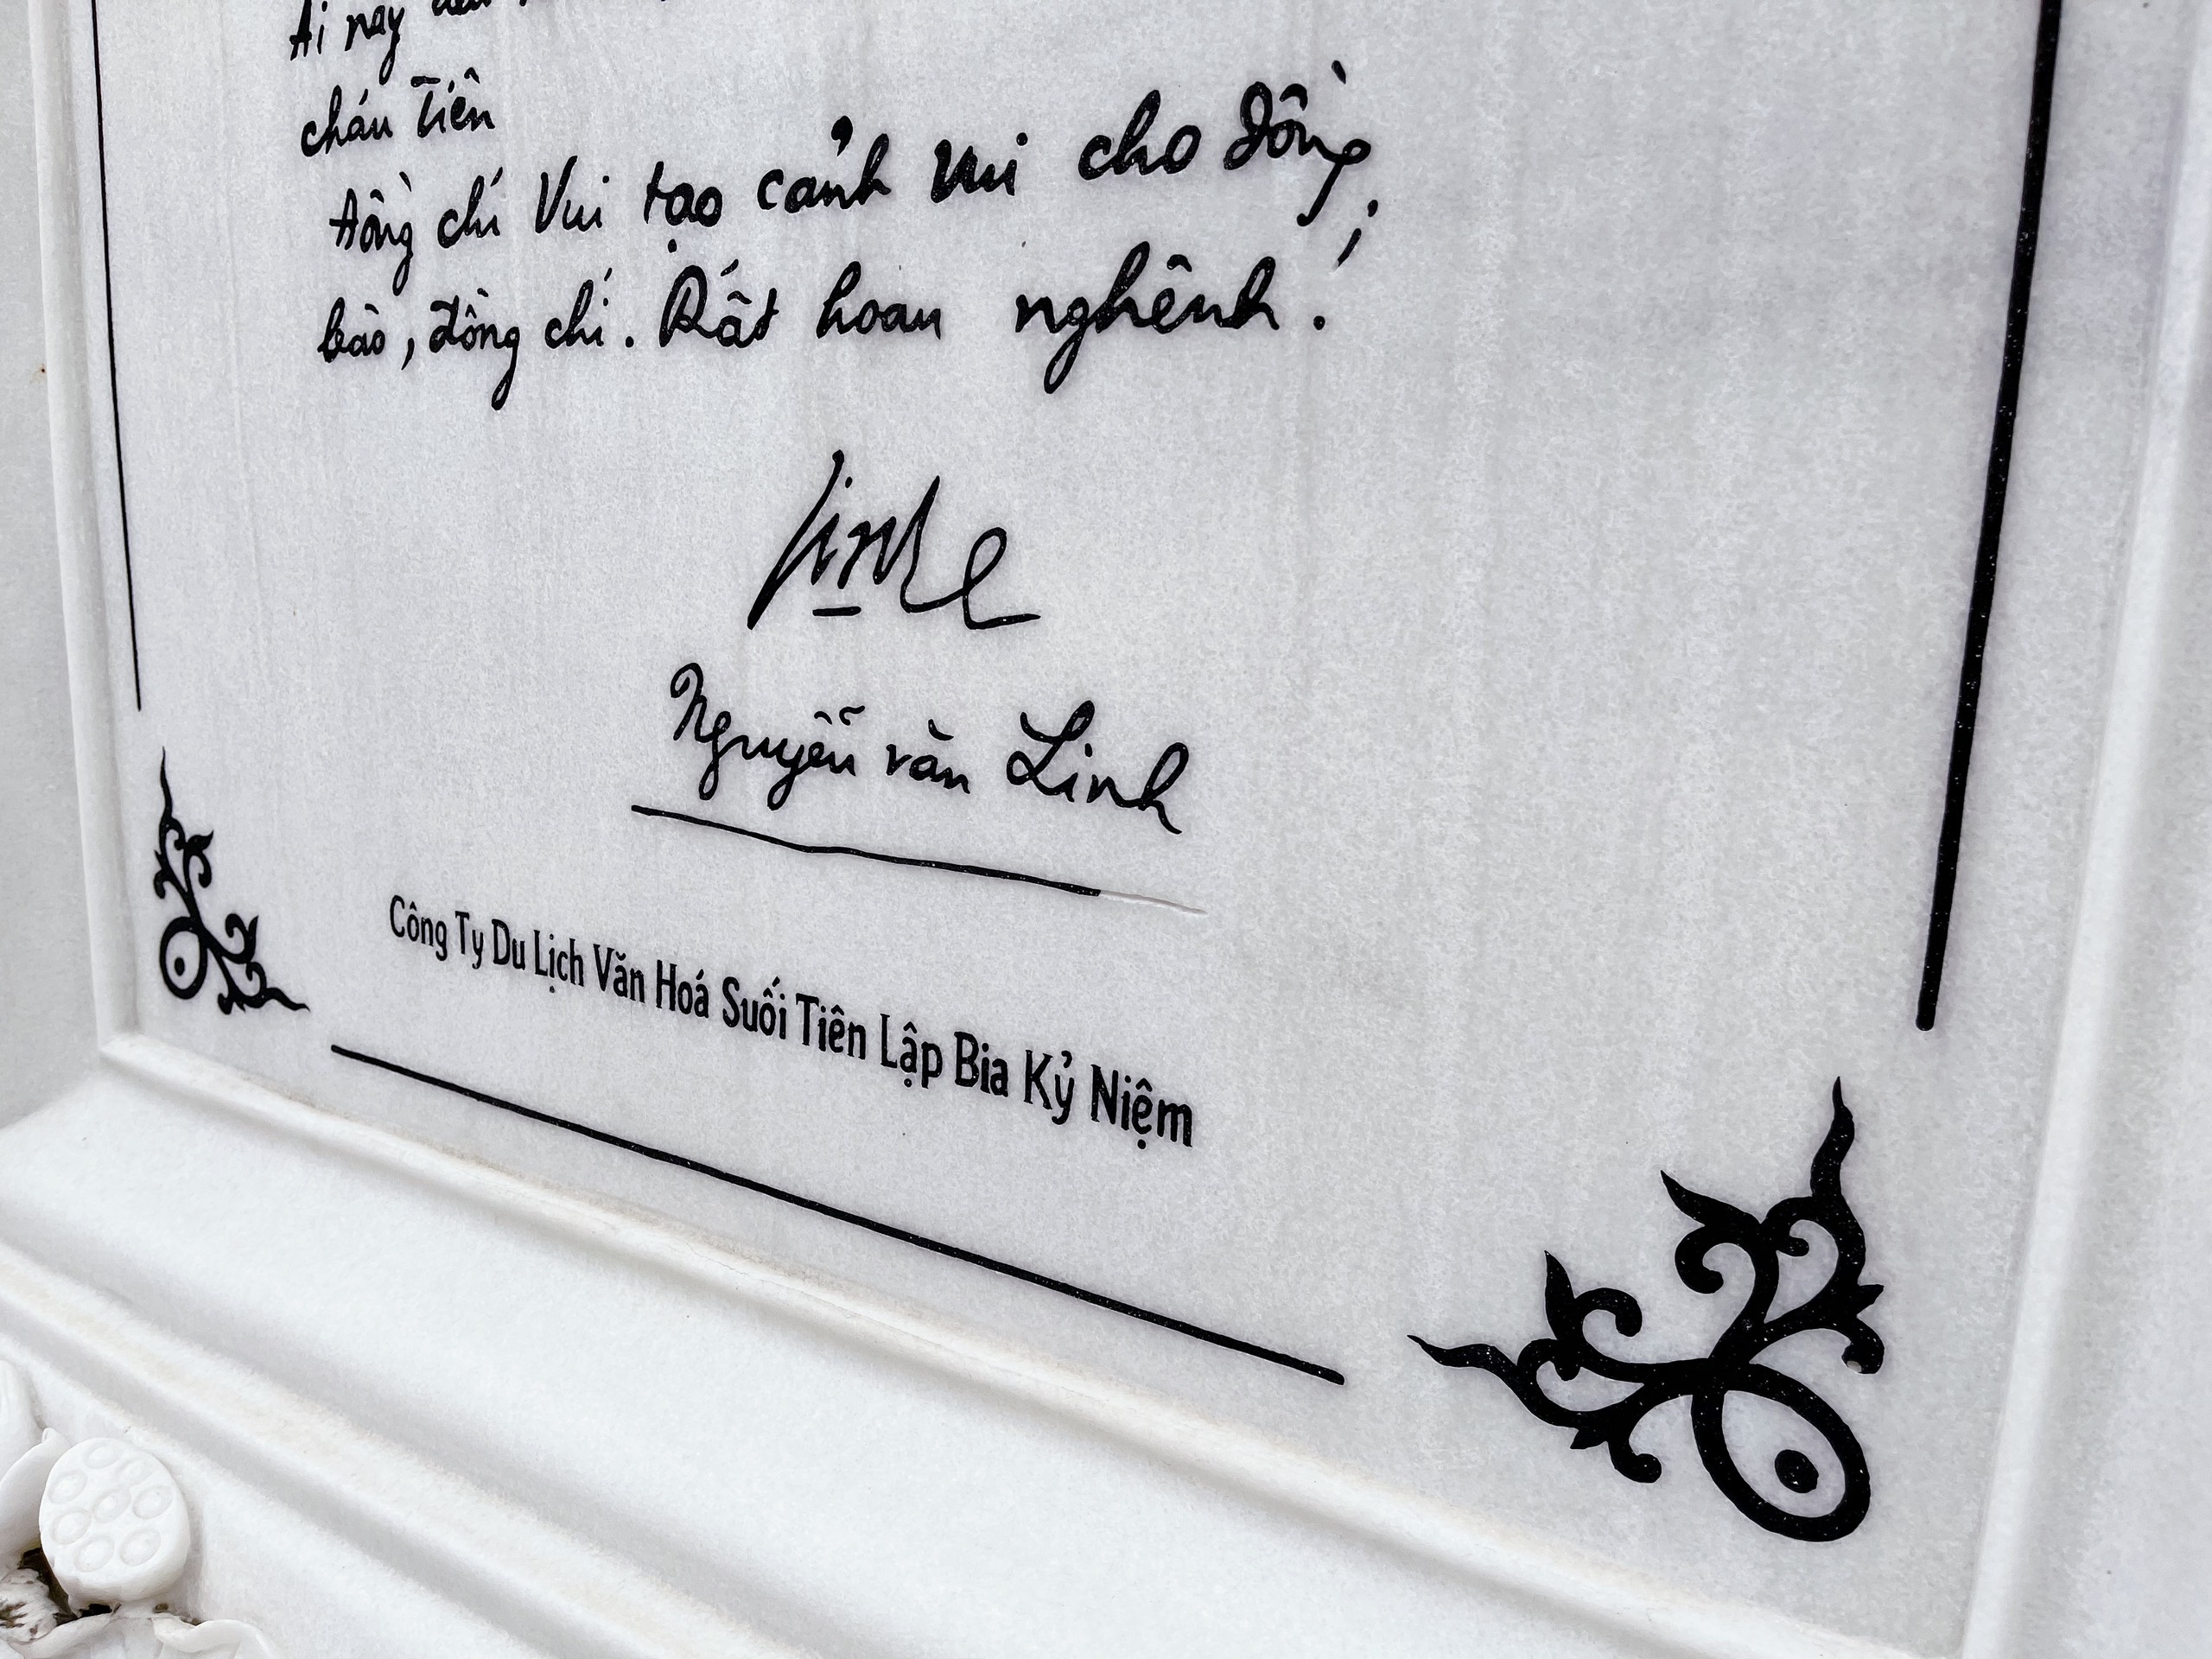 Ai nay đều
cháu Tiên
Đồng chí Vui tạo cảnh vui cho đồng
bào, đồng chí. Rất hoan nghênh!
Nguyễn văn Linh
Công Ty Du Lịch Văn Hoá Suối Tiên Lập Bia Kỷ Niệm